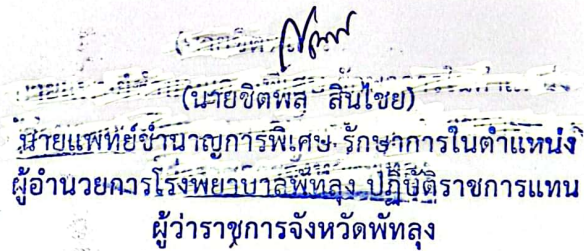 (นายชิตพล สินไชย)
นายแพทย์ชำนาญการพิเศษ รักษาการในตำแหน่ง
ผู้อำนวยการโรงพยาบาลพัทลุง ปฏิบัติราชการแทน
ผู้ว่าราชการจังหวัดพัทลุง